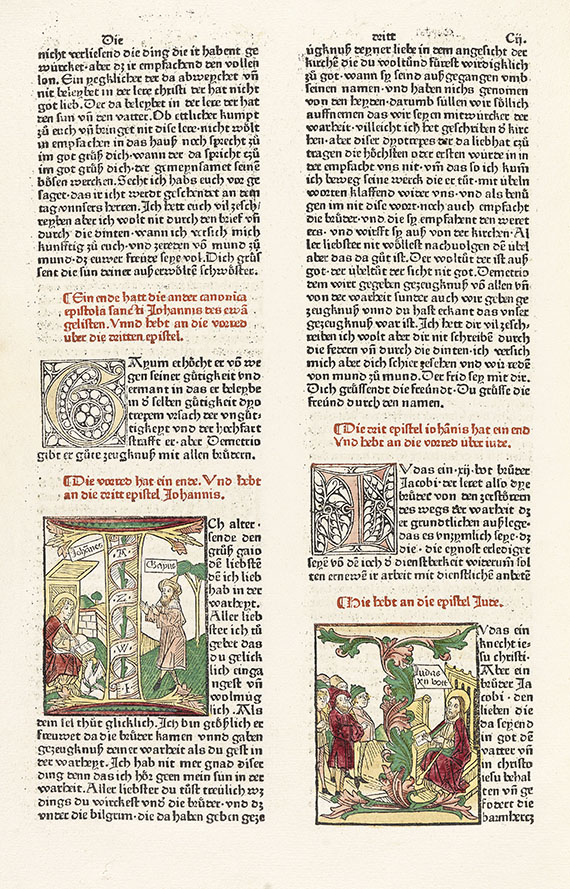 Die
nicht verliesend die ding die ir habent ge
würcket·aber dz ir empfachend den vollen
lon. Ein yegklicher der da abweychet vñ
nit beleybet in der lere christi der hat nicht
got lieb. Der da beleybet in der lere der hat
den sun vñ den vatter. Ob ettlicher kumpt
zů euch vñ bringet nit dise lere·nicht wölt
in empfachen in das hauß noch sprecht zů
im got grüß dich·wann der da spricht zů
im got grüß dich·der gemeynsamet seinen
bösen wercken. Secht ich habs euch vor ge
saget·das ir icht werdt geschendet an dem
tag vnsers herren. Ich hett euch vil zesch/
reyben aber ich wolt nit durch den brief vñ
durch die dinten·wann ich versich mich
kunfftig zů euch·vnd zereden vō mund zů
mund·dz euwer freüde seye vol. Dich grüs
sent die sun deiner außerwölten schwöster.
¶Ein ende hatt die ander canonica
epistola sancti Iohannis des ewā
gelisten. Vnnd hebt an die vorred
über die dritten epistel.
GAyum erhöcht er vō we
gen seiner gütigkeit vnd
ermant in das er beleybe
in d selben gütigkeit dyo
trepem vrsach der vngüt
tigkeyt vnd der hochfart
strafft er·aber Demetrio
gibt er gůte zeugknuß mit allen brüdern.
¶Die vorred hat ein ende. Vnd hebt
an die dritt epistel Iohannis.
Johānes
Gayus
ICh alter·
sende den
grůß gaio
dē liebstē
dē ich lieb
hab in der
warheyt.
Aller lieb
ster ich tů
gebet das
du gelick
lich einga
ngest vñ
wolmüg
lich. Als
dein sel thůt glicklich. Ich bin größlich er
freuwet da die brüder kamen vnnd gaben
gezeugknuß deiner warheit als du gest in
der warheyt. Ich hab nit mer gnad diser
ding denn das ich hör geen mein sun in der
warheit. Aller liebster du tůst treülich wz
dings du wirckest vnd die brüder·vnd dz
vnder die bilgrim·die da haben geben geze
dritt Cij.
ügknuß deyner liebe in dem angesicht der
kirchē die du woltůnd fürest wirdigklich
zů got·wann sy seind außgegangen vmb
seinen namen·vnd haben nichs genomen
von den heyden·darumb süllen wir söllich
auffnemen das wir seyen mitwürcker der
warheit·villeicht ich het geschriben d kirc
hen·aber diser dyotrepes der da liebhat czů
tragen die höchsten oder ersten würde in in
der empfacht vns nit·vm̄ das so ich kum̄
ich beweg seine werck die er tůt·mit übeln
worten klaffend wider vns·vnd als benü
gen im nit dise wort·noch auch empfacht
die brüder·vnd·die sy empfahent den weret
ers·vnd wirfft sy auß von der kirchen. Al
ler liebster nit wöllest nachuolgen dē übel
aber das da gůt ist. Der wolthůt der ist auß
got·der übelthůt der sicht nit got. Demetrio
dem wirt gegeben gezeugknuß vō allen vñ
von der warheit sunder auch wir geben ge
zeugknuß vnnd du hast erkant das vnser
gezeugknuß war ist. Ich hett dir vil zesch/
reiben ich wolt aber dir nit schreibē durch
die federn vñ durch die dinten·ich versich
mich aber dich schier zesehen vnd wir redē
von mund zů mund. Der frid sey mit dir.
Dich grüssendt die freündt·Du grüsse die
freünd durch den namen.
¶Die drit epistel iohānis hat ein end
Vnd hebt an die vorred über iude.
IVdas ein·xij·bot brůder
Jacobi·der leret also dye
brüder von den zerstörern
des wegs der warheit dz
er grundtlichen außlege·
das es vnzymlich seye·dz
die·die eynost erlediget
seyen vō dē ioch d dienstberkeit widerum̄ sol
ten ernewē ir arbeit mit dienstlichē anbetē
¶Hie hebt an die epistel Jude.
Iudas
xij bott
IVdas ein
knecht ie/
su christi·
Aber ein
brůder Ja
cobi·den
lieben die
da seyend
in got dē
vatter vñ
in christo
iesu behal
ten vñ ge
fodert die
barmhercz